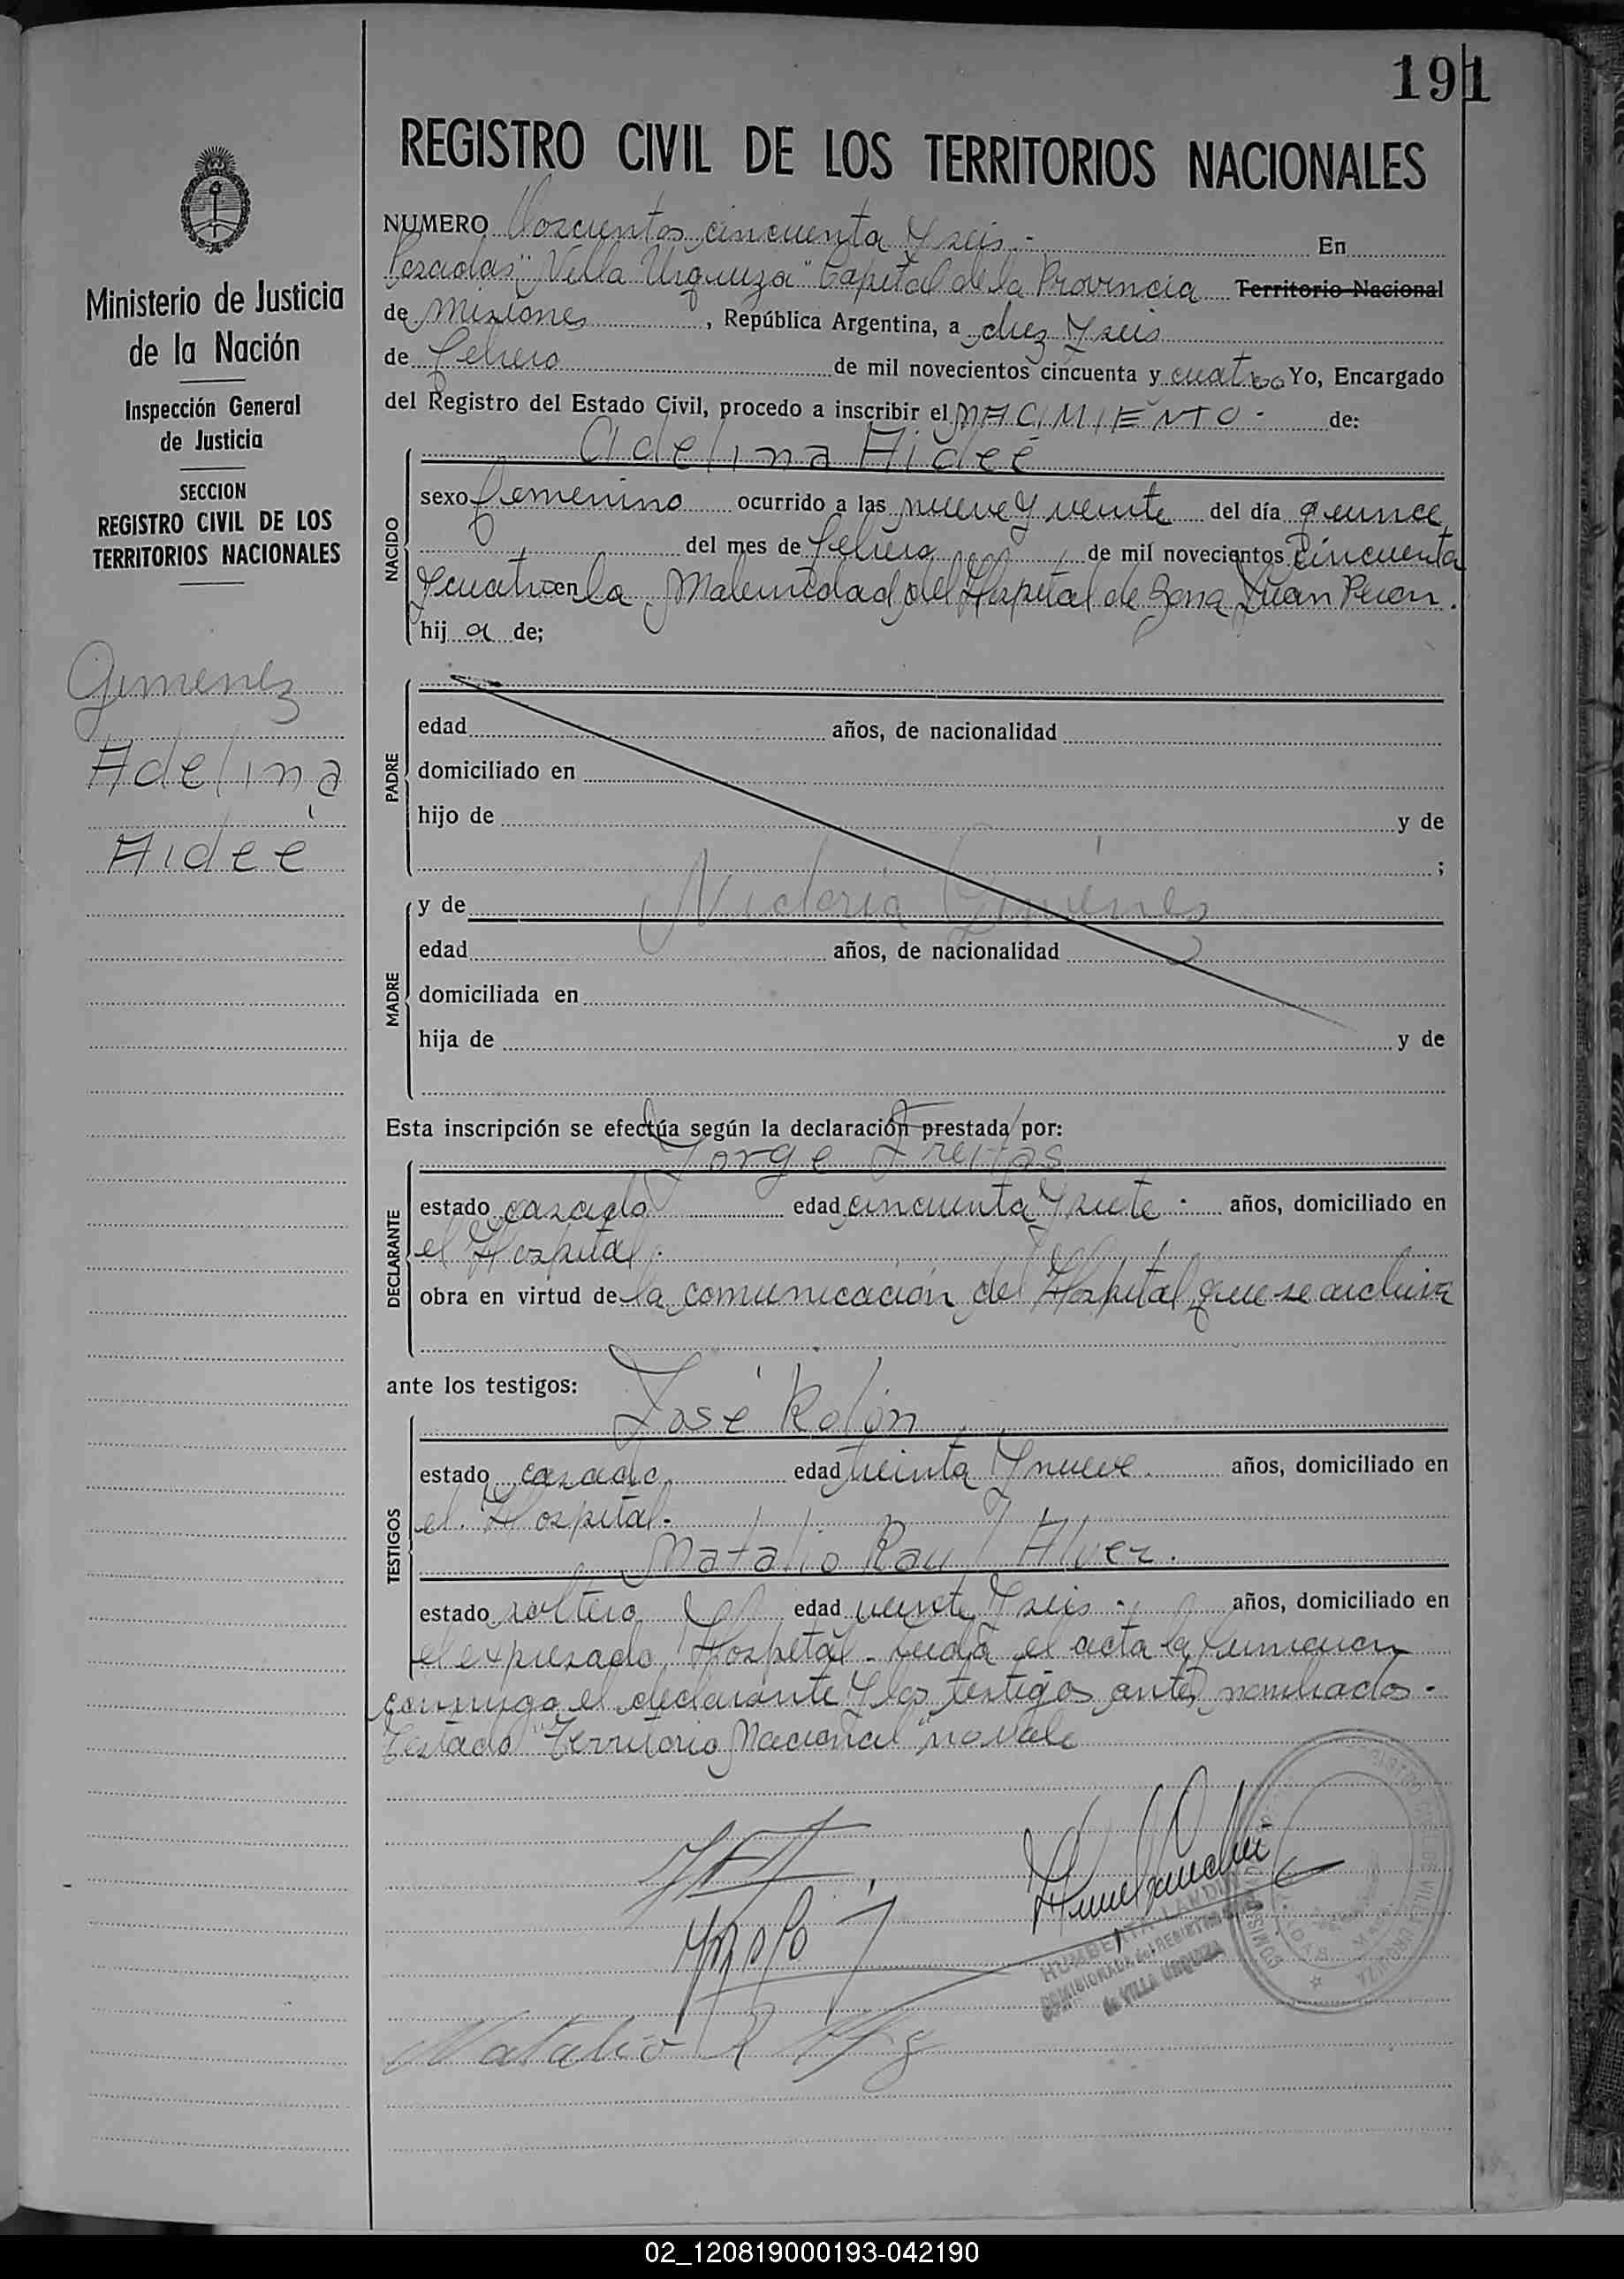 191
REGISTRO CIVIL DE LOS TERRITORIOS NACIONALES
Ministerio de Justicia
de la Nación
Inspección General
de Justicia
SECCION
REGISTRO CIVIL DE LOS
TERRITORIOS NACIONALES
Gimenez
Adelina
Aideé
NUMERO Doscientos cincuenta y seis.- En
Posadas "Villa Urquiza" Capital de la Provincia Territorio Nacional
de Misiones, República Argentina, a diez y seis
de febrero de mil novecientos cincuenta y cuatro Yo, Encargado
del Registro del Estado Civil, procedo a inscribir el NACIMIENTO- de:
Adelina Aideé
NACIDO
sexo femenino ocurrido a las nueve y veinte del día quince
del mes de febrero de mil novecientos cincuenta
y cuatro en la Maternidad del Hospital de Zona Juan Peron.
hij a de;
PADRE
edad años, de nacionalidad
domiciliado en
hijo de y de
;
MADRE
y de Victoria Gimenez
edad años, de nacionalidad
domiciliada en
hija de y de
Esta inscripción se efectúa según la declaración prestada por:
Jorge Freitas
DECLARANTE
estado casado edad cincuenta y siete - años, domiciliado en
el Hospital.
obra en virtud de la comunicación del Hospital que se archiva
ante los testigos:
José Rolón
TESTIGOS
estado casado edad treinta y nueve. años, domiciliado en
el Hospital.-
Natalio Raul Alvez.
estado soltero edad veinte y seis - años, domiciliado en
el expresado Hospital - Leída el acta la firmaron
conmigo el declarante y los testigos antes nombrados.-
Testado "Territorio Nacional" no vale
HUMBERTA LANDINI
COMISIONADA del REGISTRO CIVIL
de VILLA URQUIZA
Natalio R
02_120819000193-042190